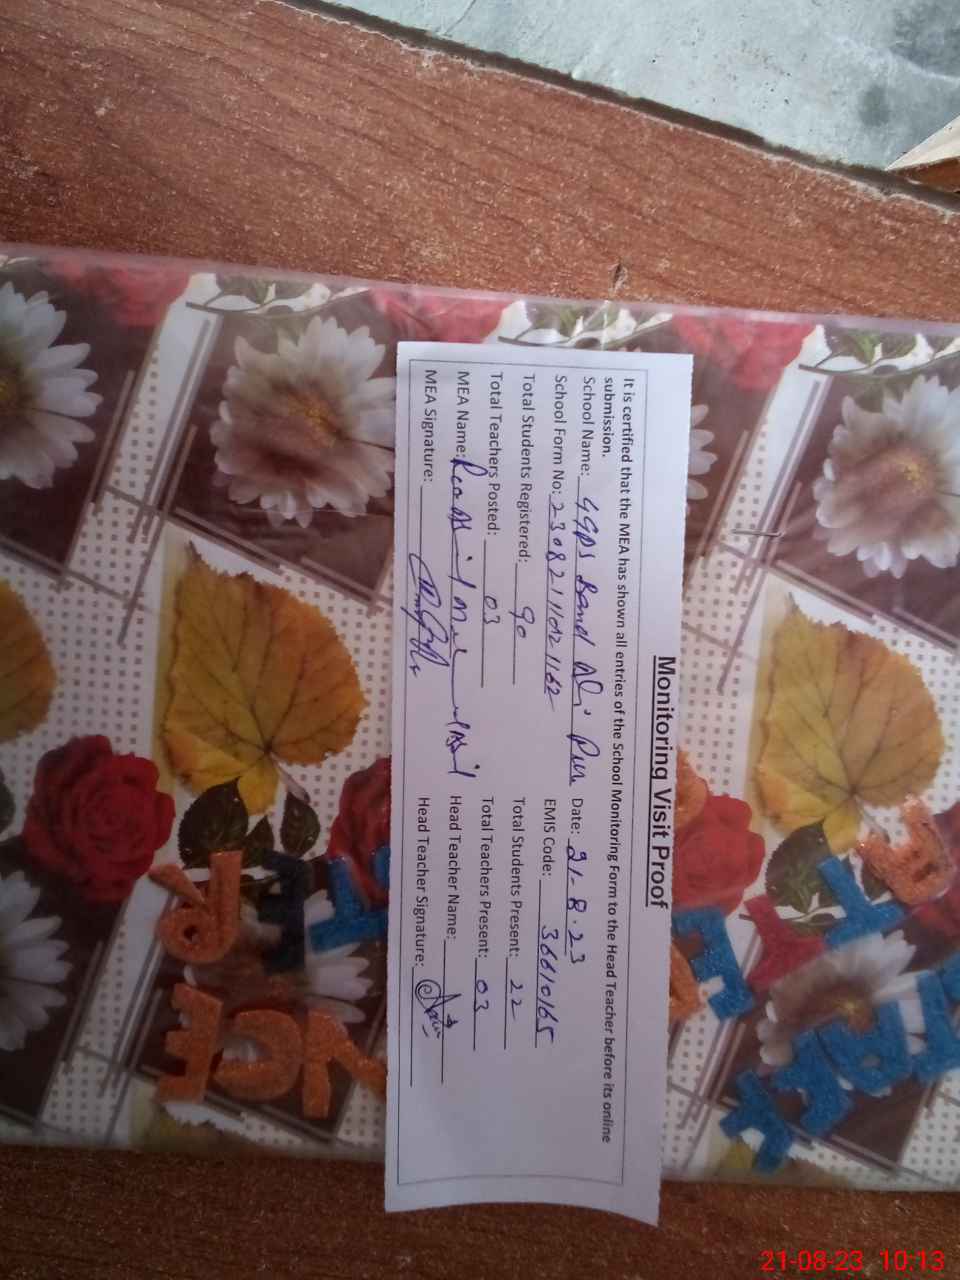 Monitoring Visit Proof
It is certified that the MEA has shown all entries of the School Monitoring Form to the Head Teacher before its online
submission.
School Name: GGPS Band Ali Pur Date: 21-8-23
School Form No: 230821110121162 EMIS Code: 36010165
Total Students Registered: 90 Total Students Present: 22
Total Teachers Posted: 03 Total Teachers Present: 03
MEA Name: Head Teacher Name:
MEA Signature: Head Teacher Signature:
21-08-23 10:13